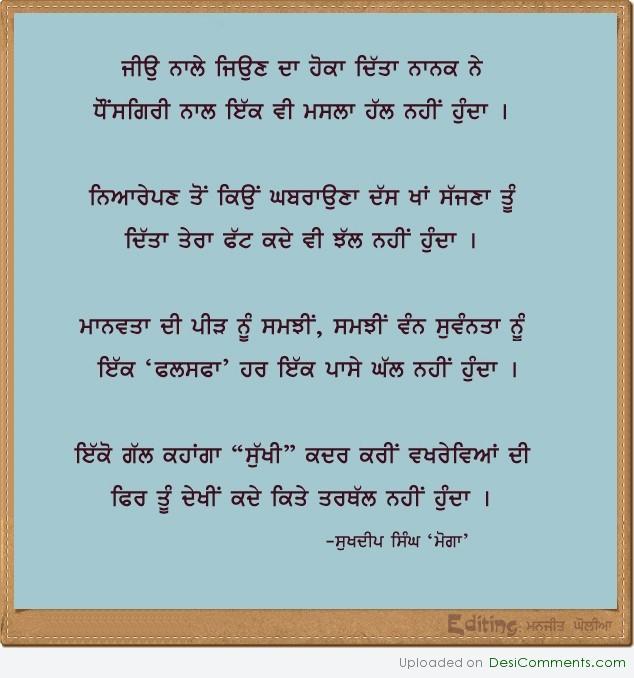 ਜੀਉ ਨਾਲੇ ਜਿਉਣ ਦਾ ਹੋਕਾ ਦਿੱਤਾ ਨਾਨਕ ਨੇ
ਧੌਂਸਗਿਰੀ ਨਾਲ ਇੱਕ ਵੀ ਮਸਲਾ ਹੱਲ ਨਹੀਂ ਹੁੰਦਾ ।
ਨਿਆਰੇਪਣ ਤੋਂ ਕਿਉਂ ਘਬਰਾਉਣਾ ਦੱਸ ਖਾਂ ਸੱਜਣਾ ਤੂੰ
ਦਿੱਤਾ ਤੇਰਾ ਫੱਟ ਕਦੇ ਵੀ ਝੱਲ ਨਹੀਂ ਹੁੰਦਾ ।
ਮਾਨਵਤਾ ਦੀ ਪੀੜ ਨੂੰ ਸਮਝੀਂ, ਸਮਝੀਂ ਵੰਨ ਸੁਵੰਨਤਾ ਨੂੰ
ਇੱਕ ‘ਫਲਸਫਾ’ ਹਰ ਇੱਕ ਪਾਸੇ ਘੱਲ ਨਹੀਂ ਹੁੰਦਾ ।
ਇੱਕੋ ਗੱਲ ਕਹਾਂਗਾ “ਸੁੱਖੀ” ਕਦਰ ਕਰੀਂ ਵਖਰੇਵਿਆਂ ਦੀ
ਫਿਰ ਤੂੰ ਦੇਖੀਂ ਕਦੇ ਕਿਤੇ ਤਰਥੱਲ ਨਹੀਂ ਹੁੰਦਾ ।
-ਸੁਖਦੀਪ ਸਿੰਘ ‘ਮੋਗਾ’
Editing: ਮਨਜੀਤ ਘੋਲੀਆ
Uploaded on DesiComments.com